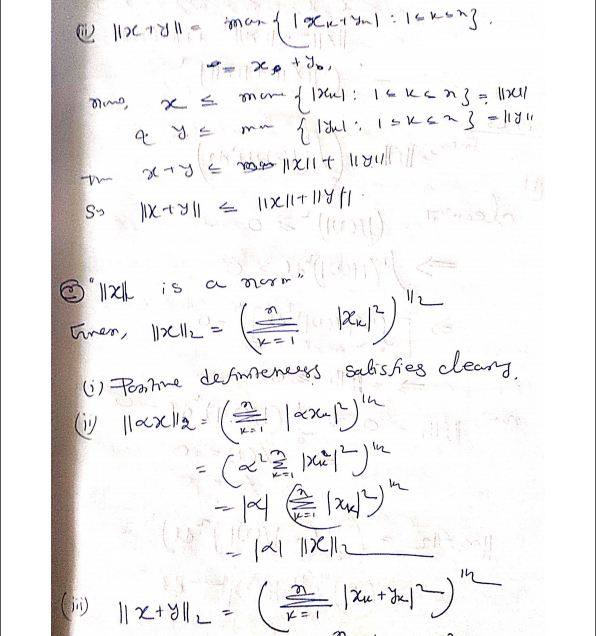 (iii) ||x+y|| = max { |xₖ+yₖ| : 1≤k≤n }.
= x₀ + y₀,
Now, x ≤ max { |xₖ| : 1≤k≤n } = ||x||
& y ≤ max { |yₖ| : 1≤k≤n } = ||y||
Then x+y ≤ ||x|| + ||y||
So ||x+y|| ≤ ||x|| + ||y||.
② "||x||₂ is a norm"
Given, ||x||₂ = (∑ₖ₌₁ⁿ |xₖ|²)^1/2
(i) Positive definiteness satisfies clearly.
(ii) ||αx||₂ = (∑ₖ₌₁ⁿ |αxₖ|²)^1/2
= (α² ∑ₖ₌₁ⁿ |xₖ|²)^1/2
= |α| (∑ₖ₌₁ⁿ |xₖ|²)^1/2
= |α| ||x||₂
(iii) ||x+y||₂ = (∑ₖ₌₁ⁿ |xₖ+yₖ|²)^1/2